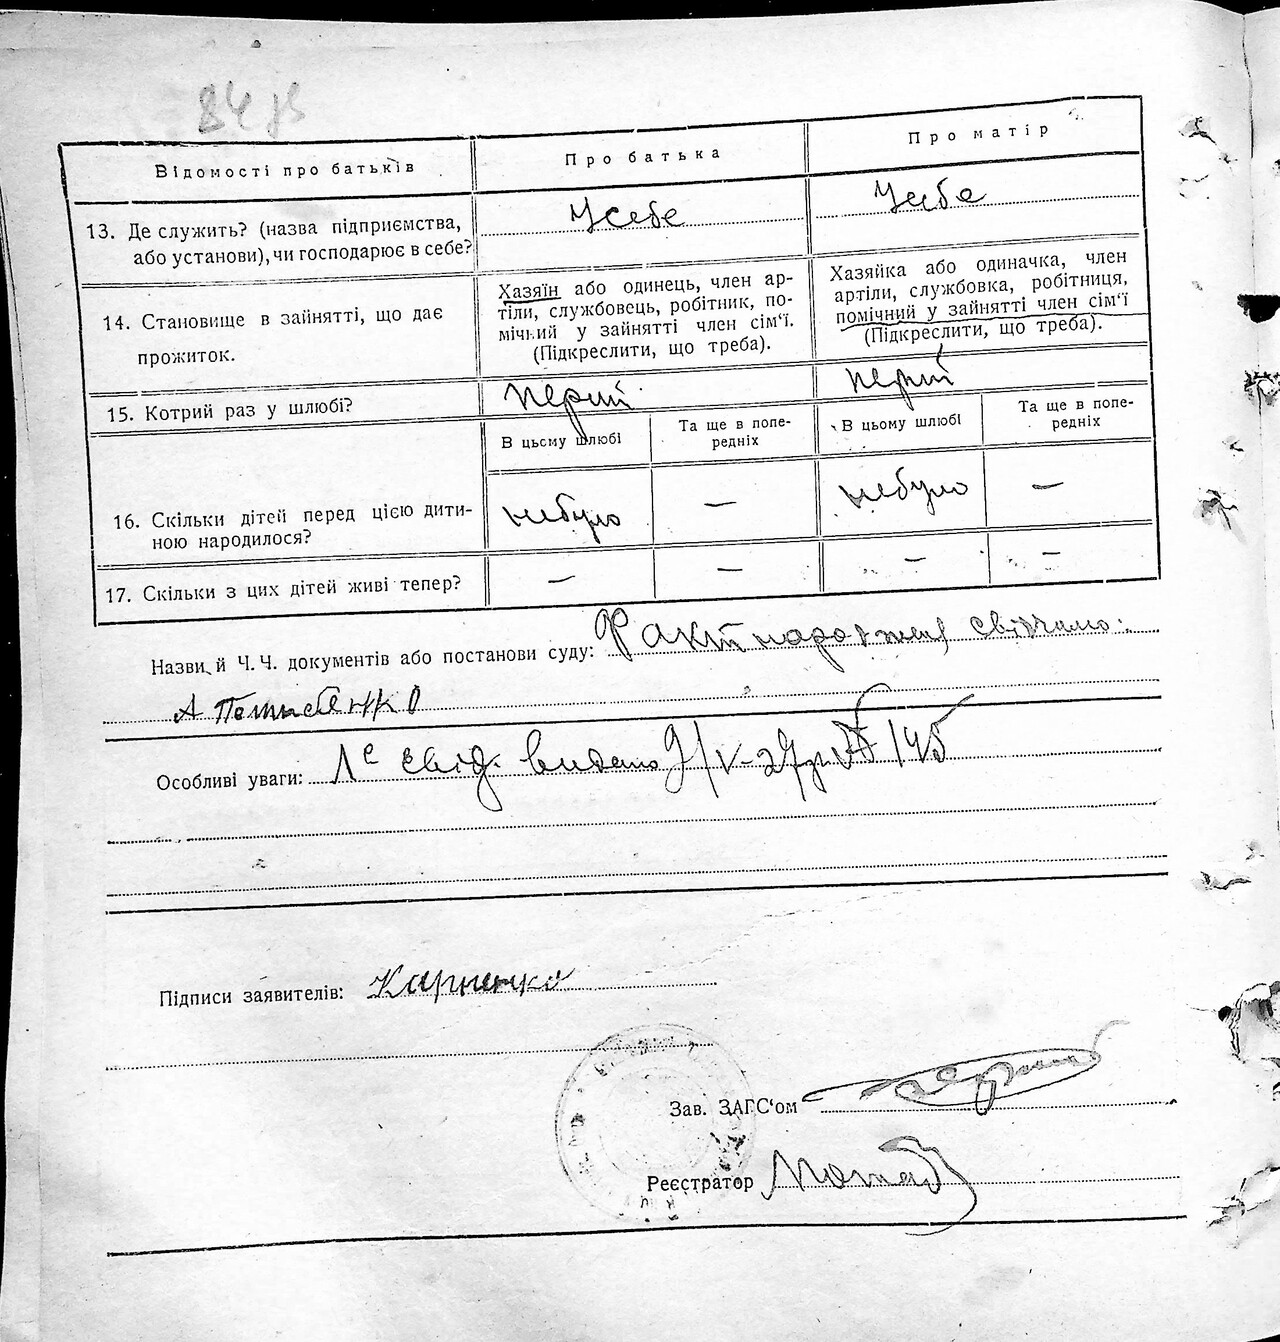 84 зв
Відомості про батьків
Про батька
Про матір
13. Де служить? (назва підприємства, або установи), чи господарює в себе?
Усебе
Усебе
14. Становище в зайнятті, що дає прожиток.
Хазяїн або одинець, член ар-
тіли, службовець, робітник, по-
мічний у зайнятті член сім'ї.
(Підкреслити, що треба).
Хазяйка або одиначка, член
артіли, службовка, робітниця,
помічний у зайнятті член сім'ї
(Підкреслити, що треба).
15. Котрий раз у шлюбі?
перший
перший
В цьому шлюбі
Та ще в попе-
редніх
В цьому шлюбі
Та ще в попе-
редніх
16. Скільки дітей перед цією дити-
ною народилося?
небуло
—
небуло
—
17. Скільки з цих дітей живі тепер?
—
—
—
—
Назви й Ч. Ч. документів або постанови суду: Факт народження свідчимо:
А
Особливі уваги: свід. видано 9/V-27р. /145
Підписи заявителів: Карпенко
Зав. ЗАГС'ом
Реєстратор